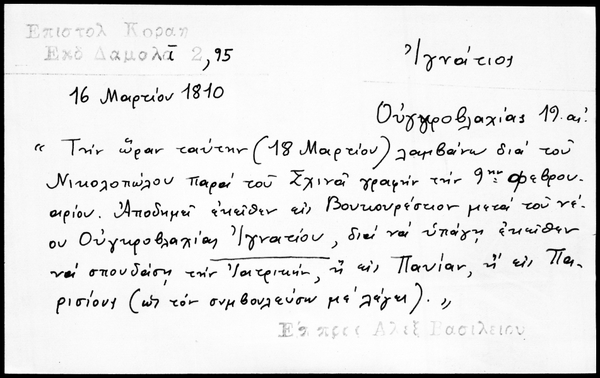 Επιστολ Κοραη
Εκδ Δαμαλᾶ 2, 95
Ἰγνάτιος
16 Μαρτίου 1810
Οὑγγροβλαχίας 19. αἰ.
“ Τὴν ὥραν ταύτην (18 Μαρτίου) λαμβάνω διὰ τοῦ
Νικολοπώλου παρὰ τοῦ Σχινᾶ γραφὴν τὴν 9ην φεβρου-
αρίου. Ἀποδημεῖ ἐκεῖθεν εἰς Βουκουρέστιον μετὰ τοῦ νέ-
ου Οὑγκροβλαχίας Ἰγνατίου, διὰ νὰ ὑπάγῃ ἐκεῖθεν
νὰ σπουδάσῃ τὴν Ἰατρικήν, ἢ εἰς Παυίαν, ἢ εἰς Πα-
ρισίους (ὡς τὸν συμβουλεύσω μὲ λέγει). „
Επ προς Αλεξ Βασιλειου